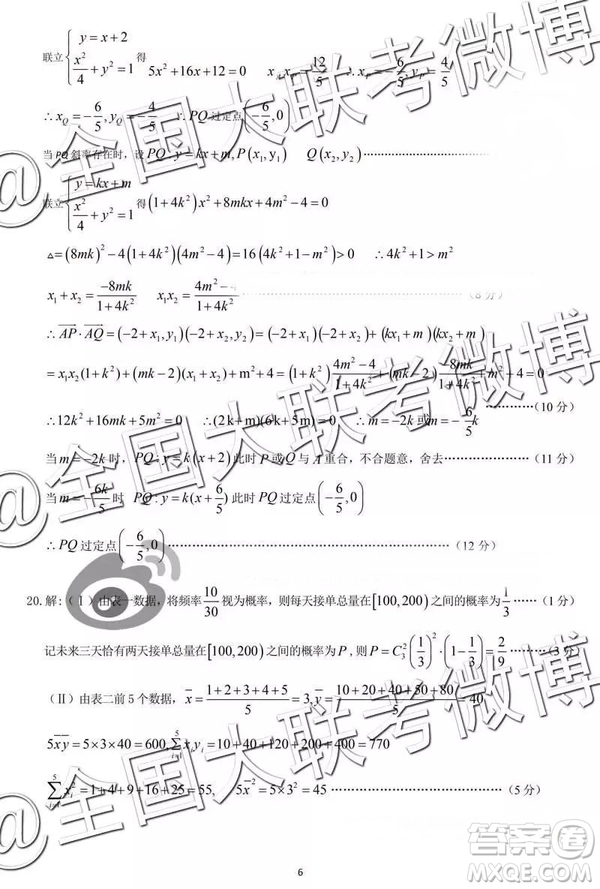 联立{y=x+2, x²/4+y²=1 得 5x²+16x+12=0
∴x_Q=-6/5, y_Q=-4/5 ∴PQ过定点(-6/5,0)
当PQ斜率存在时，设PQ:y=kx+m,P(x₁,y₁) Q(x₂,y₂)
联立{y=kx+m, x²/4+y²=1 得(1+4k²)x²+8mkx+4m²-4=0
△=(8mk)²-4(1+4k²)(4m²-4)=16(4k²+1-m²)>0 ∴4k²+1>m²
x₁+x₂=-8mk/(1+4k²) x₁x₂=4m²- /1+4k² (8分)
∴AP·AQ=(-2+x₁,y₁)(-2+x₂,y₂)=(-2+x₁)(-2+x₂)+(kx₁+m)(kx₂+m)
=x₁x₂(1+k²)+(mk-2)(x₁+x₂)+m²+4=(1+k²)(4m²-4)/(1+4k²)+(mk-2)(-8mk)/(1+4k²)+m²+4=0
(10分)
∴12k²+16mk+5m²=0 ∴(2k+m)(6k+5m)=0 ∴m=-2k或m=-6k/5
当m=-2k时，PQ:y=k(x+2)此时P或Q与A重合，不合题意，舍去……(11分)
当m=-6k/5时 PQ:y=k(x+6/5)此时PQ过定点(-6/5,0)
∴PQ过定点(-6/5,0)……(12分)
20.解:(Ⅰ)由表一数据，将频率10/30视为概率，则每天接单总量在[100,200)之间的概率为1/3……(1分)
记未来三天恰有两天接单总量在[100,200)之间的概率为P,则P=C₃²(1/3)²·(1-1/3)=2/9……(3分)
(Ⅱ)由表二前5个数据，x̄=(1+2+3+4+5)/5=3,ȳ=(10+20+40+50+80)/5=40
5x̄ȳ=5×3×40=600,∑xᵢyᵢ=10+40+120+200+400=770
∑xᵢ²=1+4+9+16+25=55, 5x̄²=5×3²=45……(5分)
6
@全国大联考微博
@全国大联考微博
@全国大联考微博
答案圈
MXQE.COM